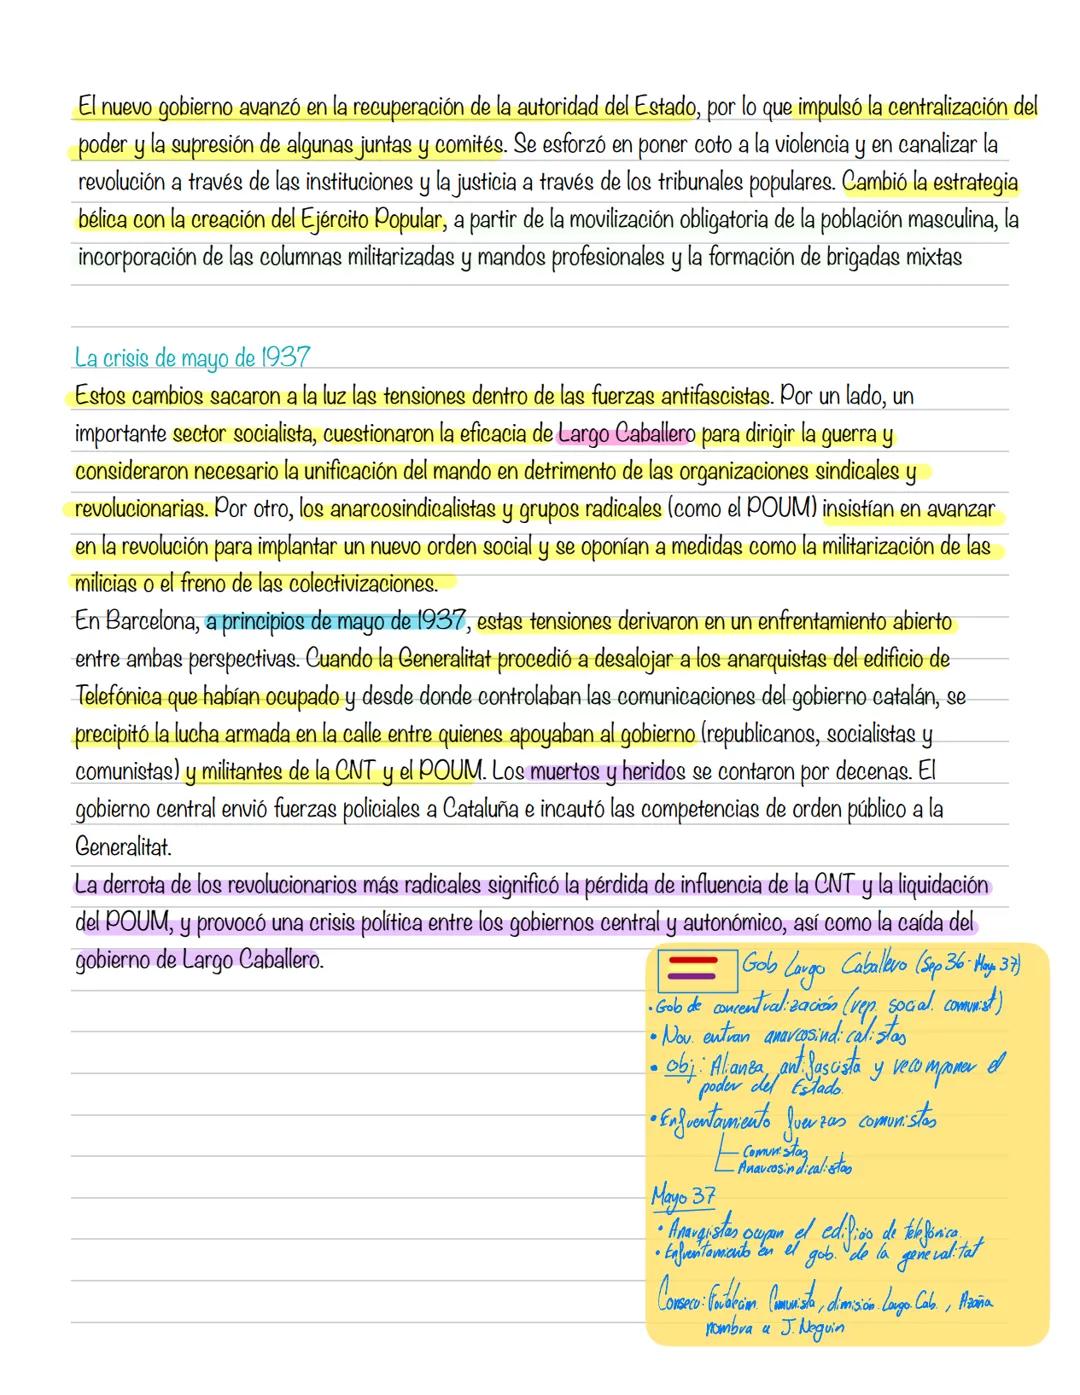 El nuevo gobierno avanzó en la recuperación de la autoridad del Estado, por lo que impulsó la centralización del
poder y la supresión de algunas juntas y comités. Se esforzó en poner coto a la violencia y en canalizar la
revolución a través de las instituciones y la justicia a través de los tribunales populares. Cambió la estrategia
bélica con la creación del Ejército Popular, a partir de la movilización obligatoria de la población masculina, la
incorporación de las columnas militarizadas y mandos profesionales y la formación de brigadas mixtas
La crisis de mayo de 1937
Estos cambios sacaron a la luz las tensiones dentro de las fuerzas antifascistas. Por un lado, un
importante sector socialista, cuestionaron la eficacia de Largo Caballero para dirigir la guerra y
consideraron necesario la unificación del mando en detrimento de las organizaciones sindicales y
revolucionarias. Por otro, los anarcosindicalistas y grupos radicales (como el POUM) insistían en avanzar
en la revolución para implantar un nuevo orden social y se oponían a medidas como la militarización de las
milicias o el freno de las colectivizaciones.
En Barcelona, a principios de mayo de 1937, estas tensiones derivaron en un enfrentamiento abierto
entre ambas perspectivas. Cuando la Generalitat procedió a desalojar a los anarquistas del edificio de
Telefónica que habían ocupado y desde donde controlaban las comunicaciones del gobierno catalán, se
precipitó la lucha armada en la calle entre quienes apoyaban al gobierno (republicanos, socialistas y
comunistas) y militantes de la CNT y el POUM. Los muertos y heridos se contaron por decenas. El
gobierno central envió fuerzas policiales a Cataluña e incautó las competencias de orden público a la
Generalitat.
La derrota de los revolucionarios más radicales significó la pérdida de influencia de la CNT y la liquidación
del POUM, y provocó una crisis política entre los gobiernos central y autonómico, así como la caída del
gobierno de Largo Caballero.
Gob Largo Caballero (Sep 36 - Mayo 37)
• Gob de concentralización (rep. social. comunist)
• Nov. entran anarcosindicalistas
• Obj: Alianza antifascista y recomponer el
poder del Estado.
• Enfrentamiento fuerzas comunistas
Comunistas
Anarcosindicalistas
Mayo 37
• Anarquistas ocupan el edificio de telefónica.
• Enfrentamiento en el gob. de la generalitat
Consecu: Fortalecim. Comunista, dimisión. Largo Cab., Azaña
nombra a J. Neguin